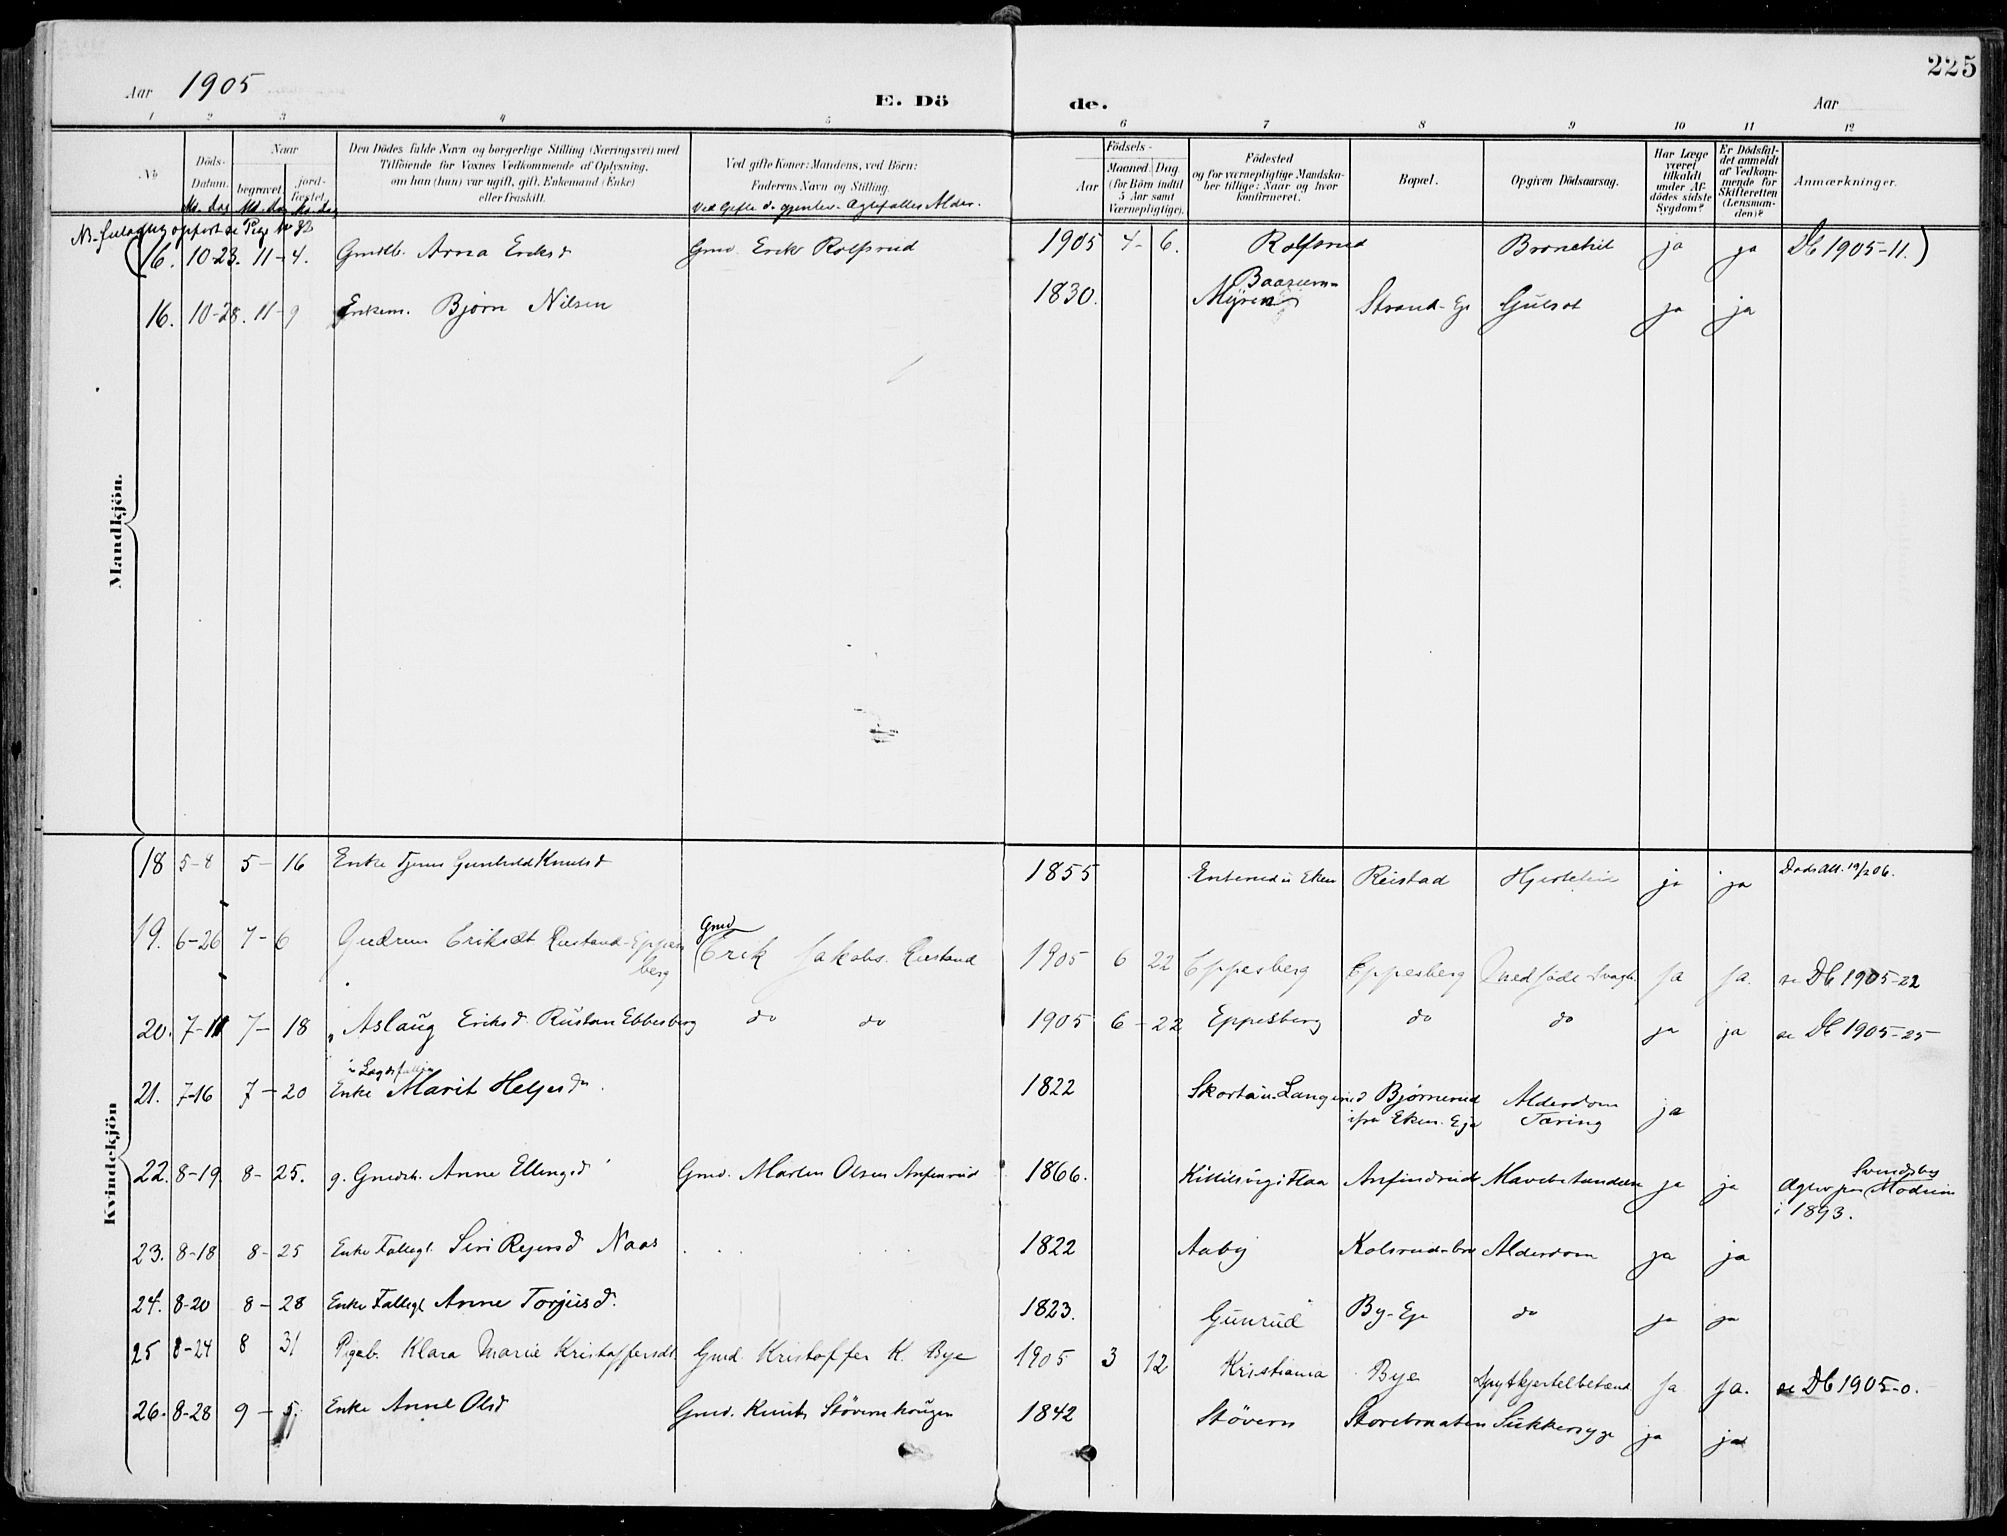 225
Aar 1905
E. Dö
de.
Aar
1 2 3 4 5 6 7 8 9 10 11 12
No
Döds-
Datum.
Md. dag
Naar
begravet
Md. dag
jord-
fæstet
Md. dag
Den Dödes fulde Navn og borgerlige Stilling (Næringsvei) med
Tilföiende for Voxnes Vedkommende af Oplysning,
om han (hun) var ugift, gift, Enkemand (Enke)
eller fraskilt.
Ved gifte Koner: Mandens, ved Börn:
Faderens Navn og Stilling.
Ved Gifte d. gjenlev. Ægtefælles Alder.
Födsels-
Aar
Maaned Dag
(for Börn indtil
5 Aar samt
Værnepligtige).
Födested
og for værnepligtige Mandska-
ber tillige: Naar og hvor
konfirmeret.
Bopæl.
Opgiven Dödsaarsag.
Har Læge
været
tilkaldt
under Af-
dödes sidste
Sygdom?
Er Dödsfal-
det anmeldt
af Vedkom-
mende for
Skifteretten
(Lensman-
den)?
Anmærkninger.
Mandkjön.
(16. 10-23. 11-4. Gmdb. Arna Eriksd Gmd. Erik Rolfsrud 1905 4- 6. Rolfsrud Bronchit ja ja Db 1905-11.)
16. 10-28. 11-9 Enkem. Bjørn Nilsen 1830. Baarum-
Myren Strand-Eje Gulsot ja ja
Kvindekjön
18 5-8 5-16 Enke Gunhild Knutsd 1855 Reistad ja ja 19/2 06.
19. 6-26 7-6 Gudrun Eriksdt Rustand-Eppes
berg
Gmd
Erik Jakobs. Rustand 1905 6 22 Eppesberg Eppesberg Medfødt Svagh. ja ja. se Db 1905-22
20. 7-11 7-18 Aslaug Eriksd. Rustan Ebbesberg do do 1905 6-22 Eppesberg do do ja ja se Db 1905-25
21. 7-16 7-20 Enke Marit Helgesdr. 1822 Bjørnerud
Alderdom
Tæring ja
22. 8-19. 8-25. g. Gmdk. Anne Ellingsd Gmd. Marten Olsen Anfinrud 1866. Anfindrud ja ja
i 1893.
23. 8-18 8-25 Enke Fattigl. Siri Reiersd Naas 1822 Aaby Kolsrud-bro Alderdom ja ja
24. 8-20 8-28 Enke Fattigl Anne Torjusd. 1823. Gunrud By-Eje do ja ja
25 8-24 8 31 Pigeb. Klara Marie Kristoffersdt. Gmd. Kristoffer K. Bye 1905 3 12 Kristiania Bye ja ja. se Db 1905-0.
26. 8-28 9-5. Enke Anne Olsd Gmd. Knut Støvernhougen 1842 Støvern Storebraaten Sukkersyge ja ja